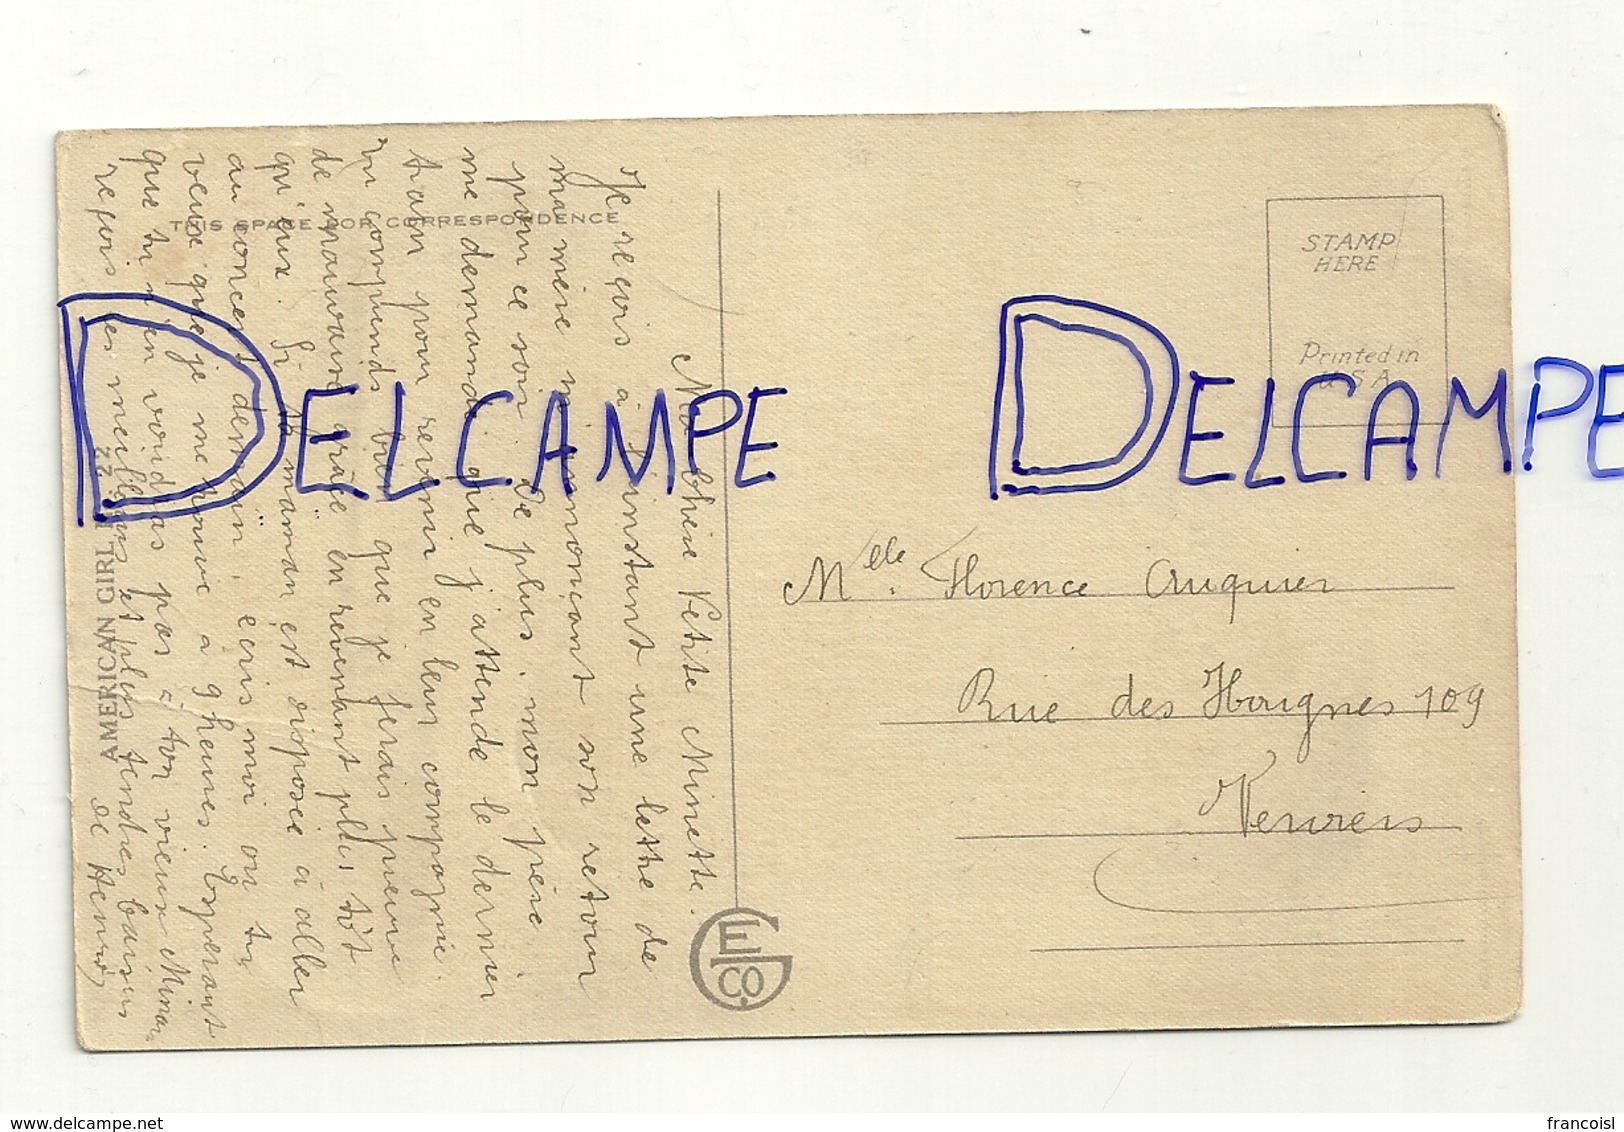 Ma Chère Petite Minette.
Je reçois à l'instant une lettre de
ma mère m'annonçant son retour
pour ce soir. De plus, mon père
me demande que j'attende le dernier
train pour revenir en leur compagnie.
Tu comprends bien que je ferais preuve
de mauvaise grâce en revenant plus tôt
qu'eux. Si ta maman est disposée à aller
au concert demain, écris moi ou tu
veux que je me trouve à 9 heures. Espérant
que tu n'en voudras pas à ton vieux
reçois les meilleurs et plus tendres baisers
de Henri
THIS SPACE FOR CORRESPONDENCE
AMERICAN GIRL
STAMP
HERE
Printed in
U S A
Melle. Florence Cruquier
Rue des Hougnes 109
Verviers
E CO.
DELCAMPE
DELCAMPE
delcampe.net
francoisl